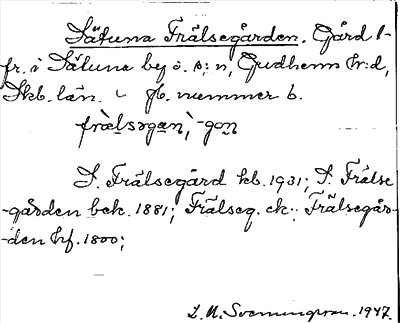 Sätuna Frälsegården. Gård 1
fr. i Sätuna by o. s:n, Gudhems hr:d,
Skb. län. Jb. nummer 6.
frälsəgan, -gon
S. Frälsegård kb. 1931; S. Frälse
-gården bek. 1881; Frälseg. ek.; Frälsegår-
-den hf. 1800;
1947.